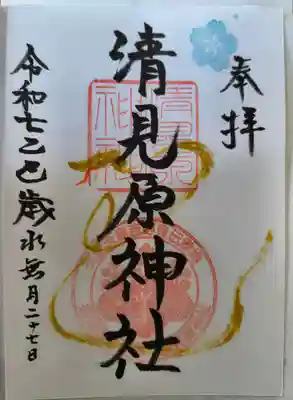 奉拝
清見原神社
令和七乙巳歳水無月二十七日